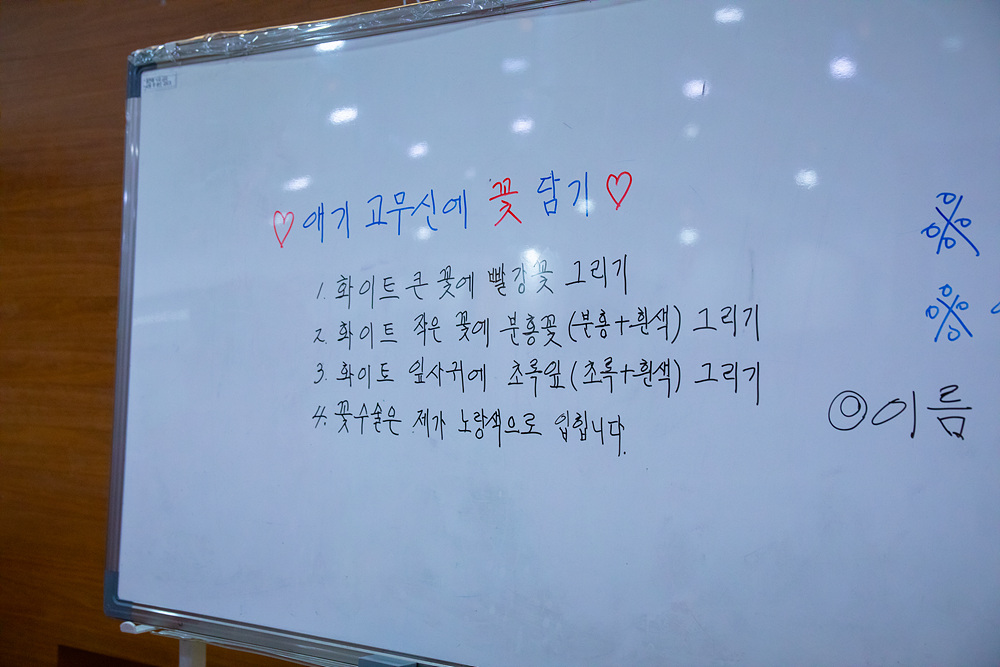 ♡ 애기 고무신에 꽃 담기 ♡
1. 화이트 큰 꽃에 빨강꽃 그리기
2. 화이트 작은 꽃에 분홍꽃(분홍+흰색) 그리기
3. 화이트 잎사귀에 초록잎(초록+흰색) 그리기
4. 꽃수술은 제가 노랑색으로 입힙니다.
◎이름